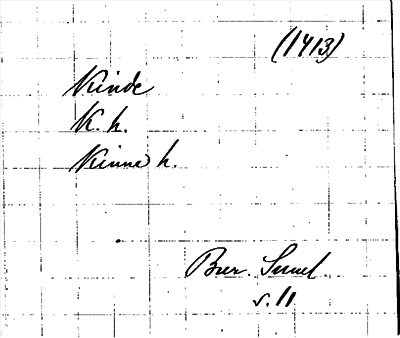 (1413)
Kinde
K. h.
Kinne h.
Brer. Smuel.
s. 11